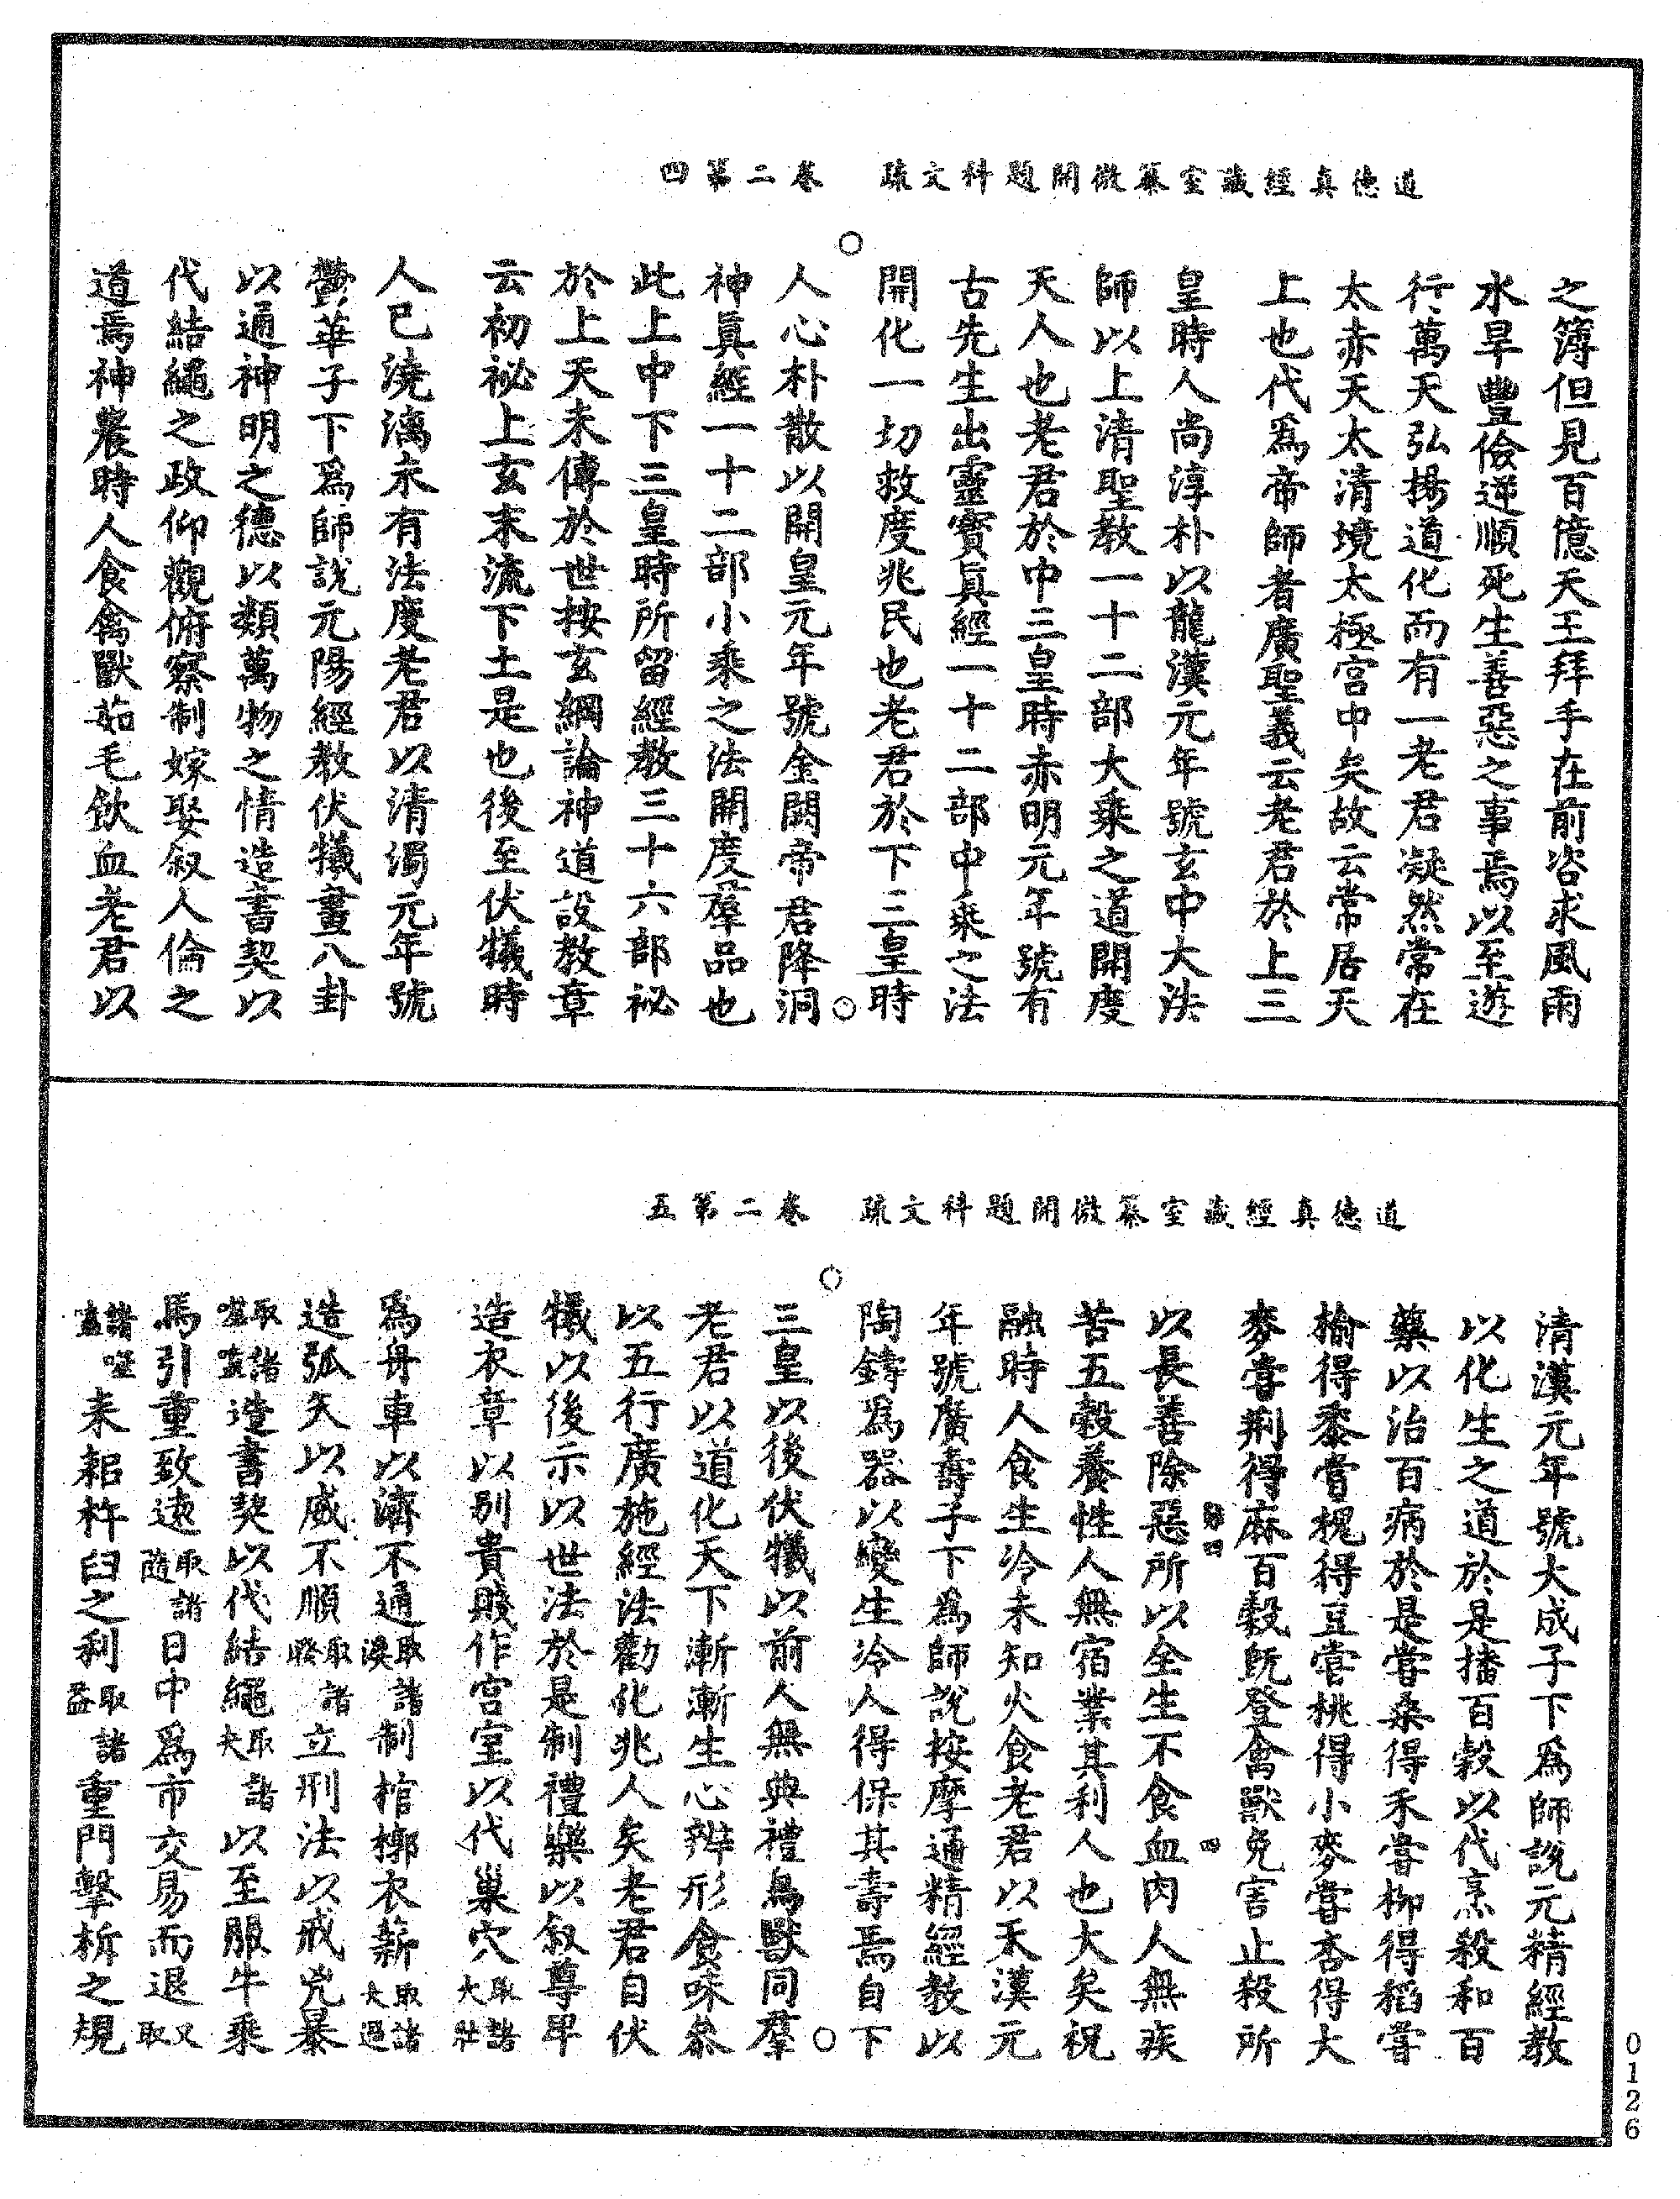 道德真經藏室纂微開題科文疏　卷二第四
之簿但見百億天王拜手在前咨求風雨
水旱豐儉逆順死生善惡之事焉以至遊
行萬天弘揚道化而有一老君凝然常在
太赤天太清境太極宮中矣故云常居天
上也代爲帝師者廣聖義云老君於上三
皇時人尚淳朴以龍漢元年號玄中大法
師以上清聖教一十二部大乘之道開度
天人也老君於中三皇時赤明元年號有
古先生出靈寳眞經一十二部中乘之法
開化一切救度兆民也老君於下三皇時
人心朴散以開皇元年號金闕帝君降洞
神眞經一十二部小乘之法開度羣品也
此上中下三皇時所留經教三十六部祕
於上天未傳於世按玄綱論神道設教章
云初祕上玄末流下土是也後至伏犧時
人已澆漓未有法度老君以清濁元年號
欝華子下爲師說元陽經教伏犧畫八卦
以通神明之德以類萬物之情造書契以
代結繩之政仰觀俯察制嫁娶叙人倫之
道焉神農時人食禽獸茹毛飲血老君以
道德真經藏室纂微開題科文疏　卷二第五
清漢元年號大成子下爲師說元精經教
以化生之道於是播百穀以代烹殺和百
藥以治百病於是嘗桑得禾嘗柳得稻嘗
榆得黍嘗槐得豆嘗桃得小麥嘗杏得大
麥嘗荆得麻百穀旣登禽獸免害止殺所
以長善除惡所以全生不食血肉人無疾
苦五穀養性人無宿業其利人也大矣祝
融時人食生冷未知火食老君以天漢元
年號廣壽子下爲師說按摩通精經教以
陶鑄爲器以變生冷人得保其壽焉自下
三皇以後伏犧以前人無典禮鳥獸同羣
老君以道化天下漸漸生心辨形食味叅
以五行廣施經法勸化兆人矣老君自伏
犧以後示以世法於是制禮樂以叙尊卑
造衣章以别貴賤作宮室以代巢穴取諸大壯
爲舟車以濟不通取諸渙制棺槨衣薪取諸大過
造弧矢以威不順取諸睽立刑法以戒兇暴
取諸噬嗑造書契以代結繩取諸夬以至服牛乘
馬引重致遠取諸隨日中爲市交易而退又取
諸噬嗑耒耜杵臼之利取諸益重門擊柝之規
0126